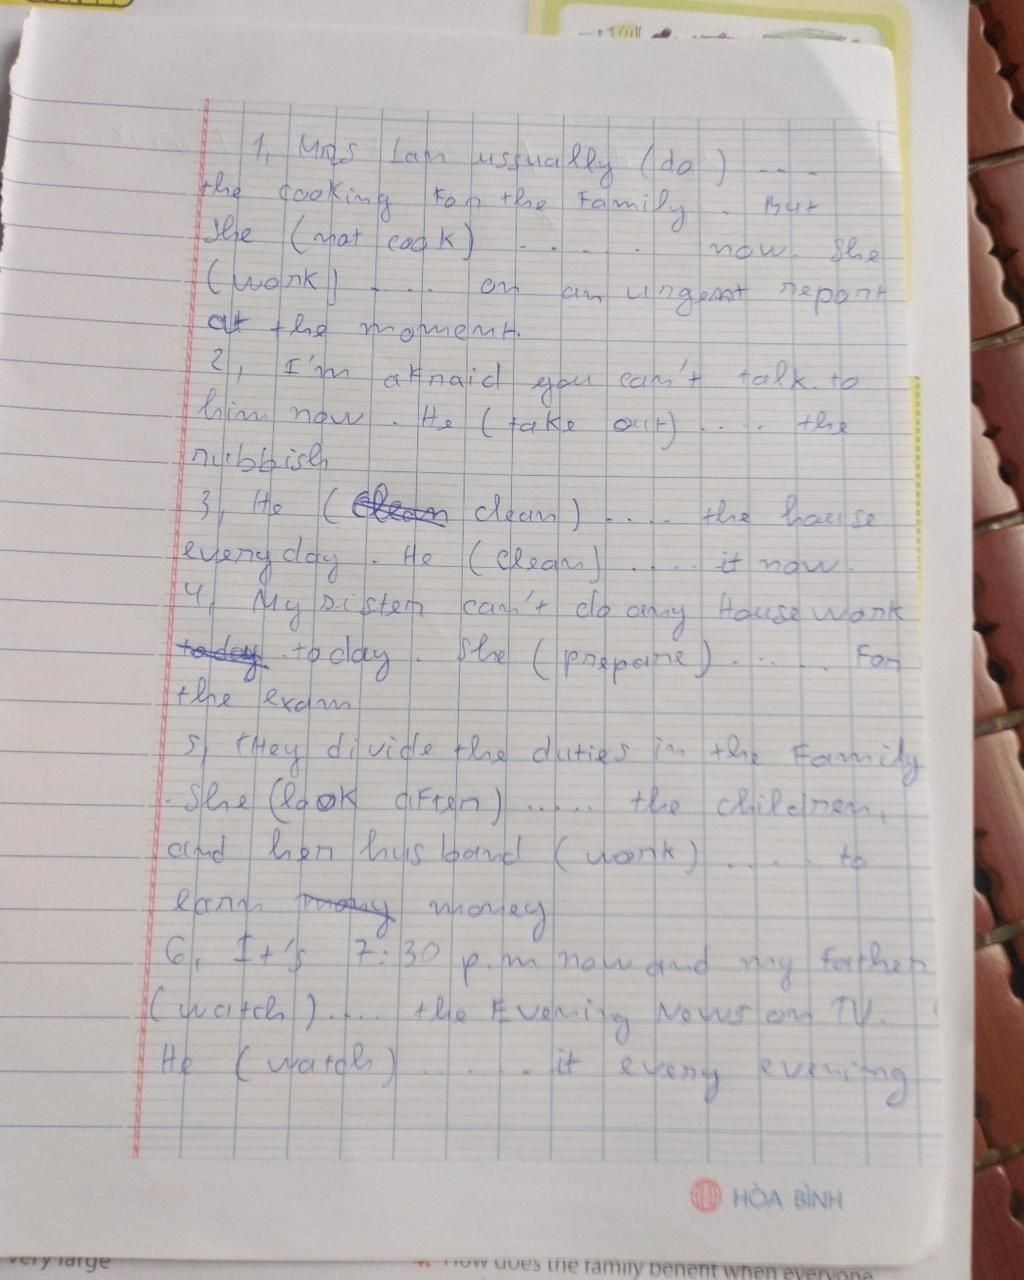 1, Mrs Lan ussually (do) ....
the cooking For the Family . But
She (not cook) ....... now. She
(work) ..... on an urgent report
at the moment.
2, I'm afraid you can't talk to
him now . He (take out) .... the
rubbish
3, He (clean clean) .... the house
every day . He (clean) ..... it now.
4, My sister can't do any House work
today today . She (prepare) ...... For
the exam
5, they divide the duties in the Family
. She (look after) ..... the children,
and her husband (work) ..... to
earn money
6, It's 7:30 p.m now and my father
(watch) .... the Evening News on TV.
He (watch) ...... it every evening
HÒA BÌNH
very large
How does the family benefit when everyone